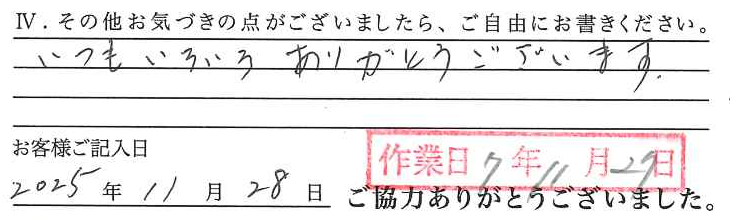 Ⅳ．その他お気づきの点がございましたら、ご自由にお書きください。
いつもいろいろ ありがとうございます.
お客様ご記入日
2025 年 11 月 28 日
作業日 7年 11月 29日
ご協力ありがとうございました。